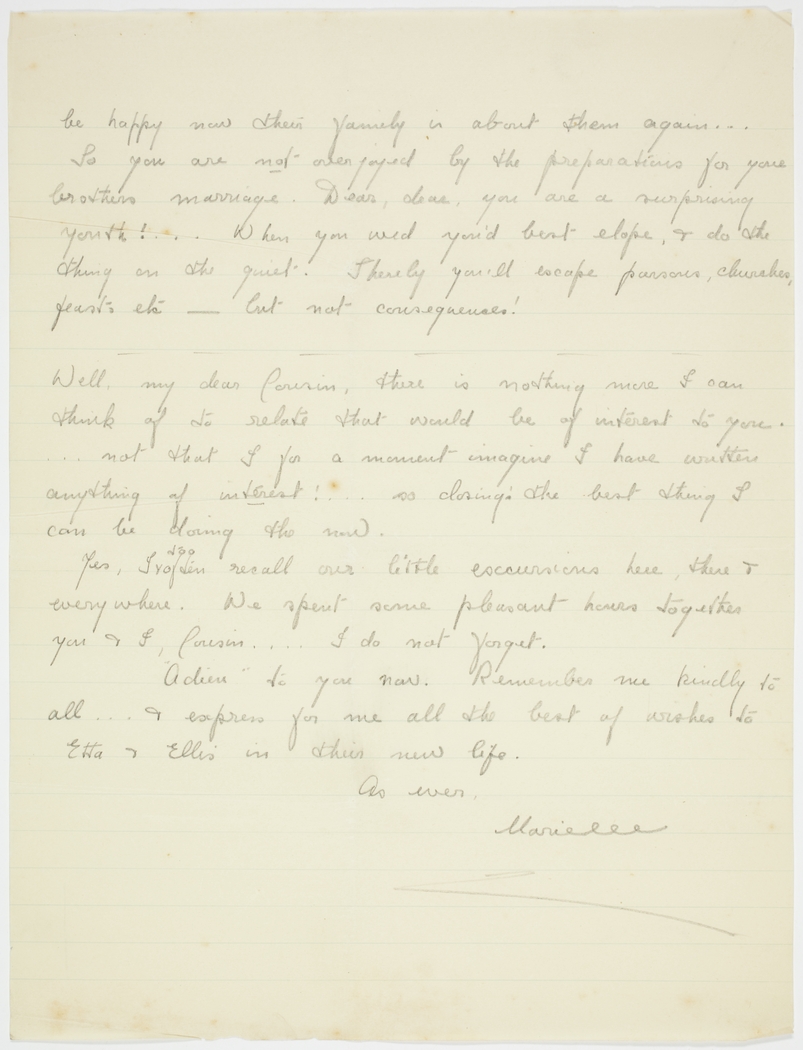 be happy now their family is about them again...
So you are not overjoyed by the preparations for your
brothers marriage. Dear, dear, you are a surprising
youth!.... When you wed you'd best elope, & do the
thing on the quiet. Thereby you'll escape parsons, churches,
feasts etc — but not consequences!
Well, my dear Cousin, there is nothing more I can
think of to relate that would be of interest to you.
... not that I for a moment imagine I have written
anything of interest!.... so closing's the best thing I
can be doing the now.
Yes, I too often recall our little excursions here, there &
everywhere. We spent some pleasant hours together
you & I, Cousin.... I do not forget.
"Adieu" to you now. Remember me kindly to
all... & express for me all the best of wishes to
Etta & Ellis in their new life.
As ever,